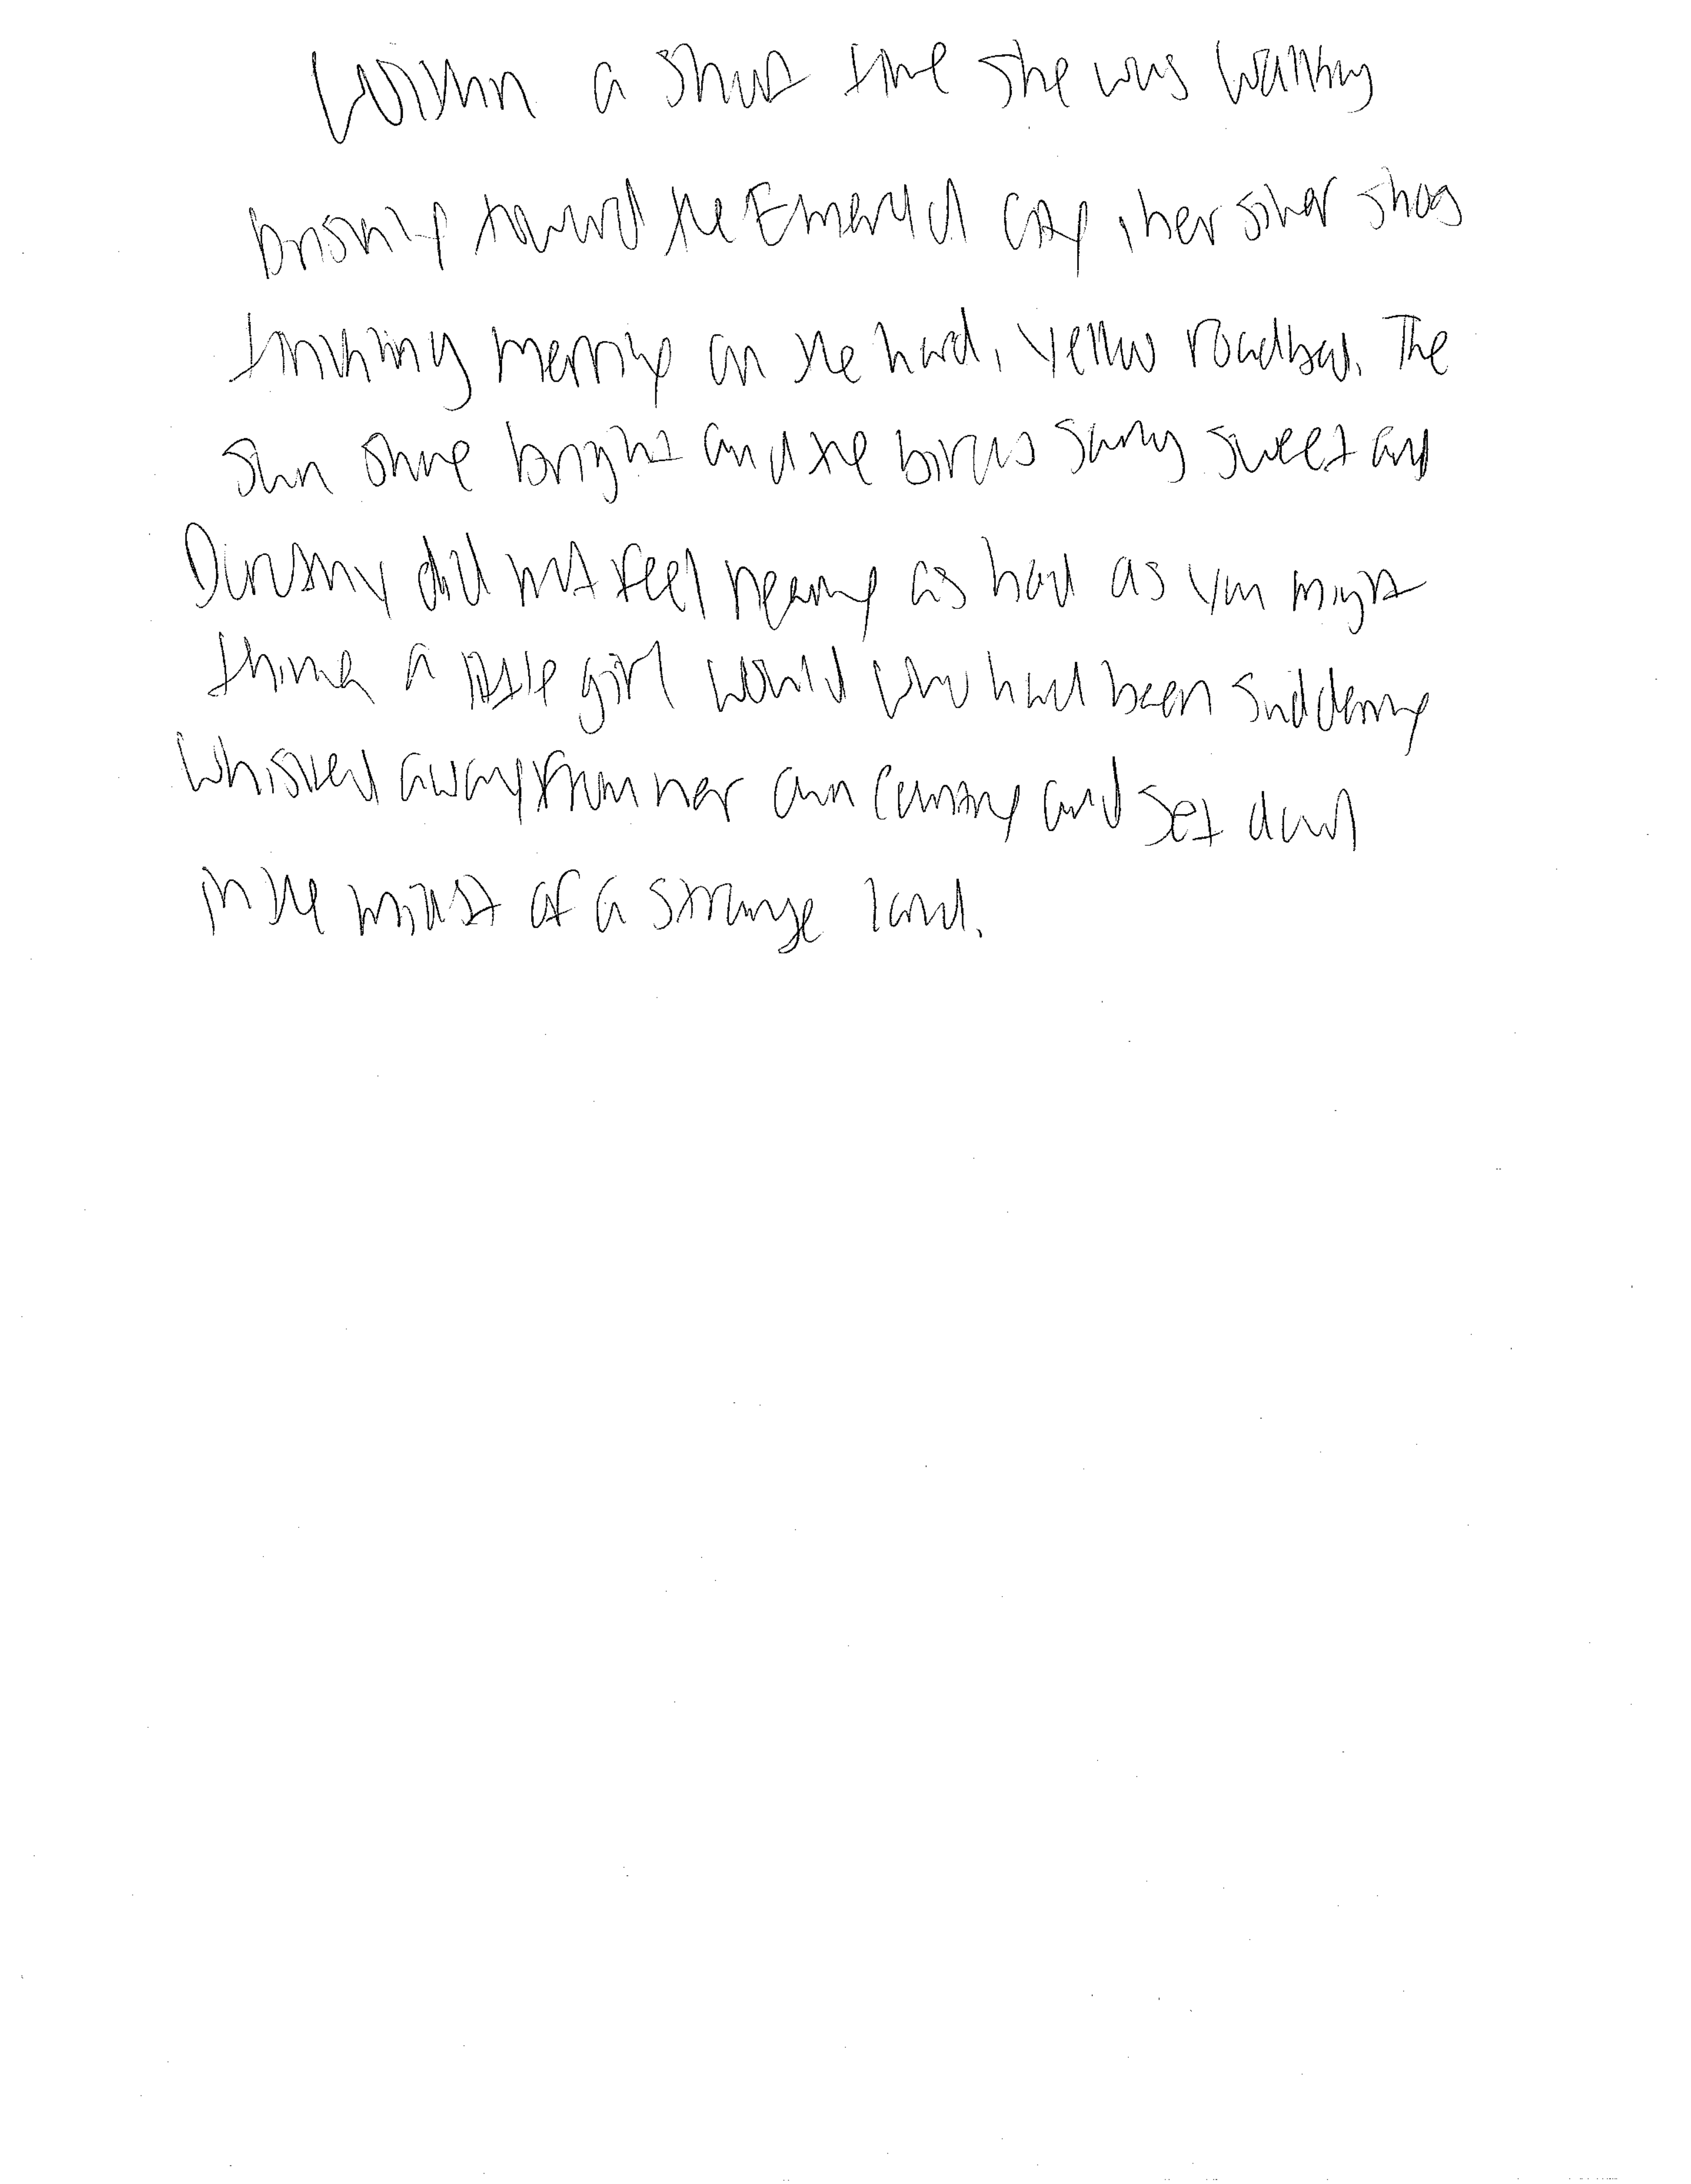 Within a short time she was walking
briskly toward the Emerald City, her silver shoes
tinkling merrily on the hard, yellow roadbed. The
sun shone bright and the birds sang sweet and
Dorothy did not feel nearly as bad as you might
think a little girl would who had been suddenly
whisked away from her own country and set down
in the midst of a strange land.